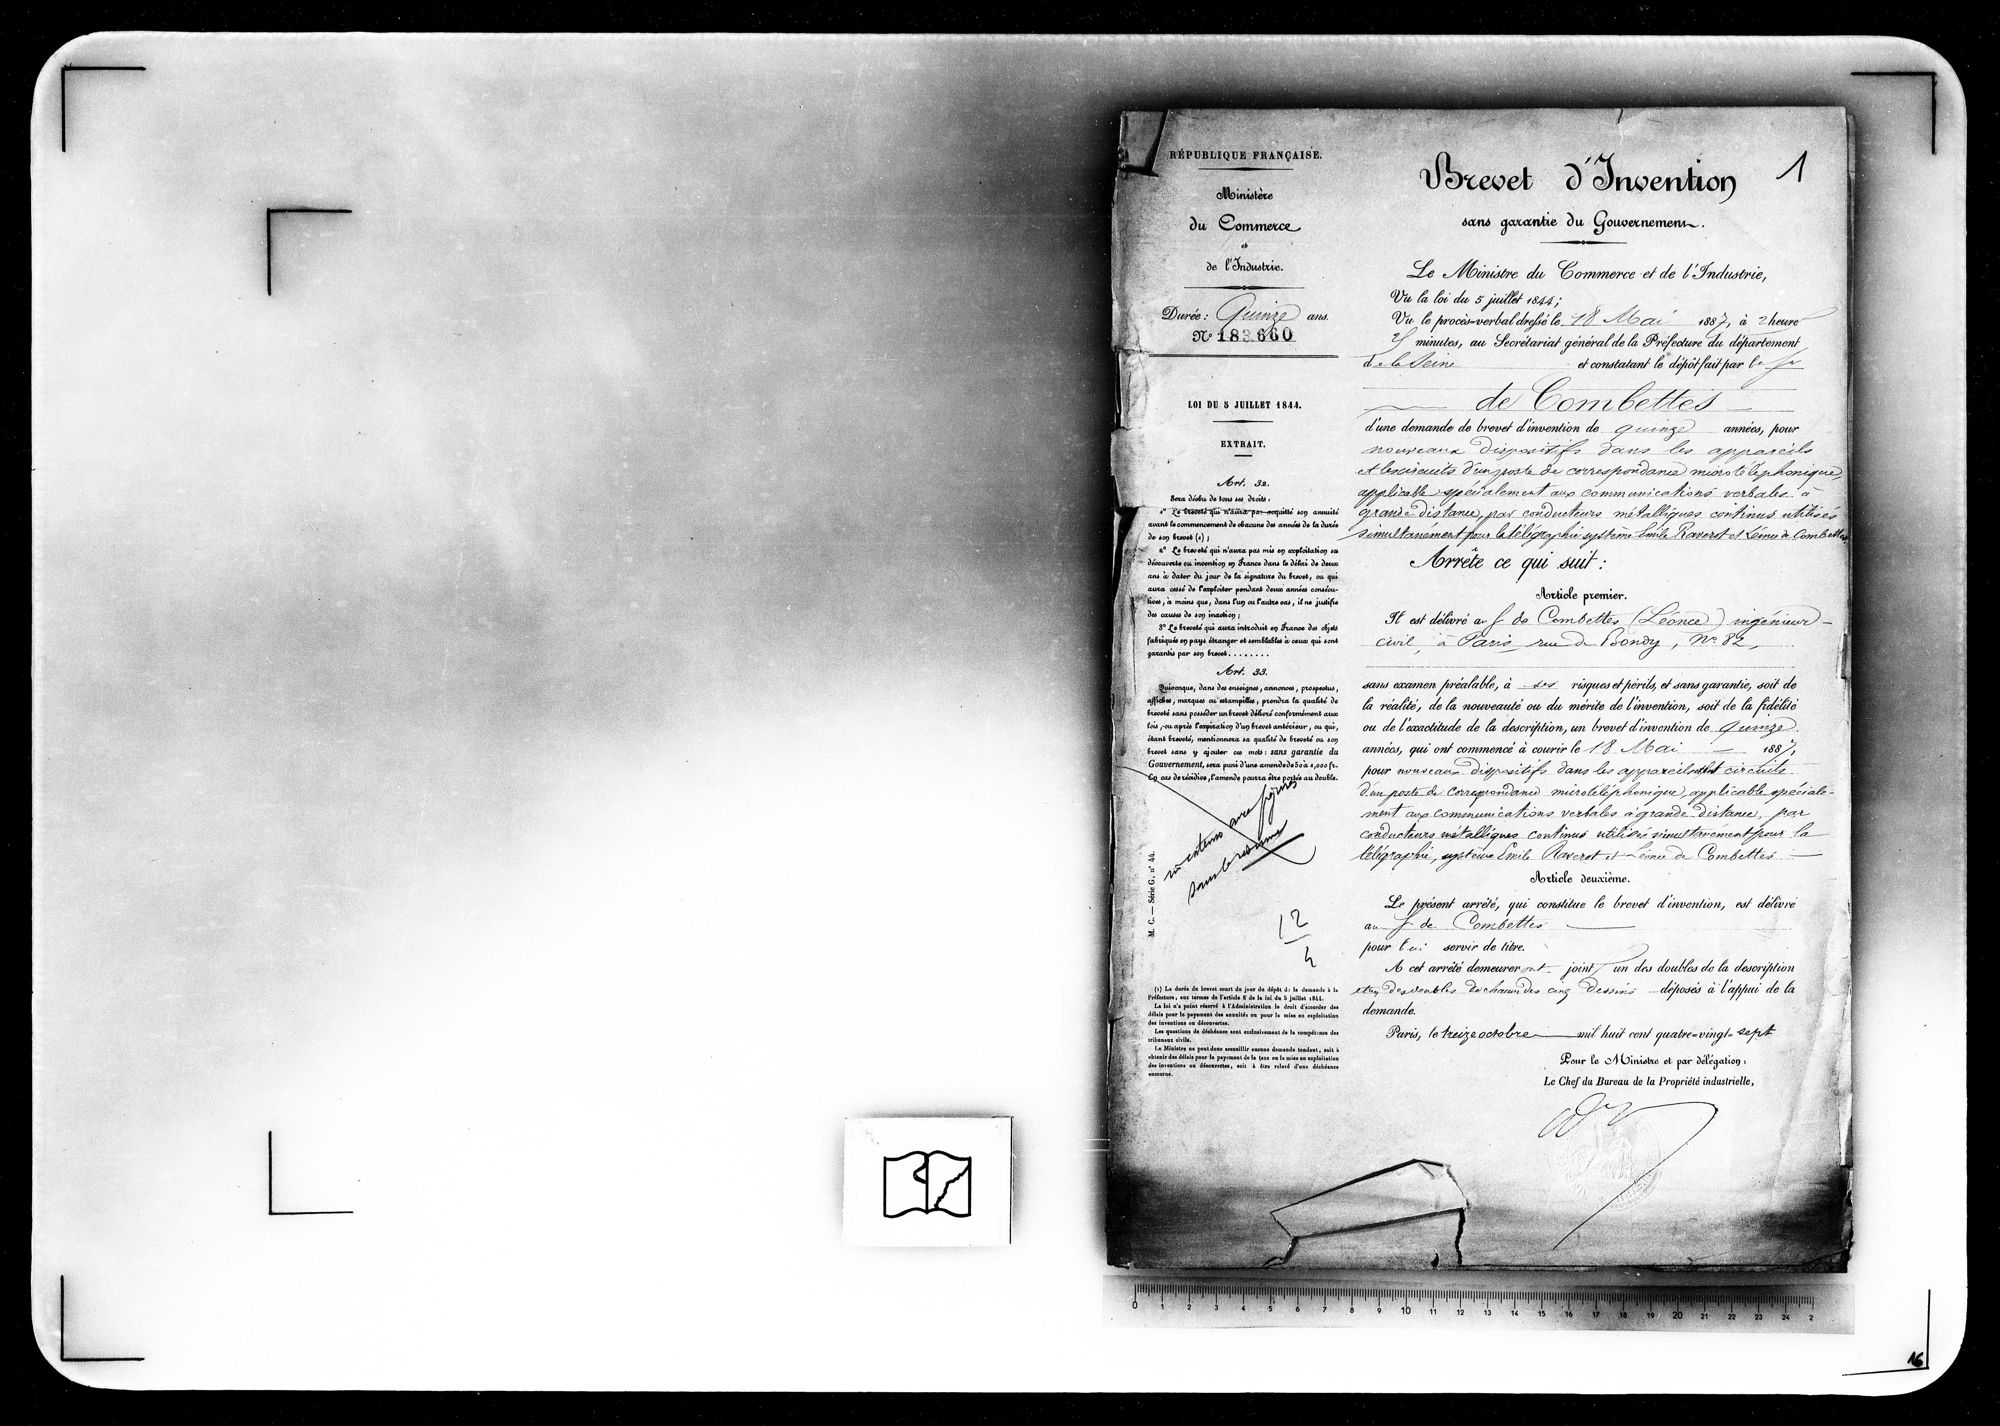 RÉPUBLIQUE FRANÇAISE.
Ministère
du Commerce
et
de l'Industrie.
Durée : Quinze ans.
N° 183.660
LOI DU 5 JUILLET 1844.
EXTRAIT.
Art. 32.
Sera déchu de tous ses droits :
1° Le breveté qui n'aura pas acquitté son annuité
avant le commencement de chacune des années de la durée
de son brevet (1) ;
2° Le breveté qui n'aura pas mis en exploitation sa
découverte ou invention en France dans le délai de deux
ans à dater du jour de la signature du brevet, ou qui
aura cessé de l'exploiter pendant deux années consécu-
tives, à moins que, dans l'un ou l'autre cas, il ne justifie
des causes de son inaction ;
3° Le breveté qui aura introduit en France des objets
fabriqués en pays étranger et semblables à ceux qui sont
garantis par son brevet........
Art. 33.
Quiconque, dans des enseignes, annonces, prospectus,
affiches, marques ou estampilles, prendra la qualité de
breveté sans posséder un brevet délivré conformément aux
lois, ou après l'expiration d'un brevet antérieur, ou qui,
étant breveté, mentionnera sa qualité de breveté ou son
brevet sans y ajouter ces mots : sans garantie du
Gouvernement, sera puni d'une amende de 50 à 1,000 fr.
En cas de récidive, l'amende pourra être portée au double.
in extenso avec figures
sans le résumé
M. C. — Série G, n° 44.
12
4
(1) La durée du brevet court du jour du dépôt de la demande à la
Préfecture, aux termes de l'article 8 de la loi du 5 juillet 1844.
La loi n'a point réservé à l'Administration le droit d'accorder des
délais pour le payement des annuités ou pour la mise en exploitation
des inventions ou découvertes.
Les questions de déchéance sont exclusivement de la compétence des
tribunaux civils.
Le Ministre ne peut donc accueillir aucune demande tendant, soit à
obtenir des délais pour le payement de la taxe ou la mise en exploitation
des inventions ou découvertes, soit à être relevé d'une déchéance
encourue.
Brevet d'Invention 1
sans garantie du Gouvernement.
Le Ministre du Commerce et de l'Industrie,
Vu la loi du 5 juillet 1844 ;
Vu le procès-verbal dressé le 18 Mai 1887, à 2 heures
minutes, au Secrétariat général de la Préfecture du département
de la Seine et constatant le dépôt fait par le Sr
de Combettes
d'une demande de brevet d'invention de quinze années, pour
nouveaux dispositifs dans les appareils
et les circuits d'un poste de correspondance microtéléphonique,
applicable spécialement aux communications verbales à
grande distance, par conducteurs métalliques continus utilisés
simultanément pour la télégraphie, système Emile Raverot et Léonce de Combettes.
Arrête ce qui suit :
Article premier.
Il est délivré au Sr de Combettes (Léonce) ingénieur
civil, à Paris, rue de Bondy, N° 82,
sans examen préalable, à ses risques et périls, et sans garantie, soit de
la réalité, de la nouveauté ou du mérite de l'invention, soit de la fidélité
ou de l'exactitude de la description, un brevet d'invention de quinze
années, qui ont commencé à courir le 18 Mai 1887,
pour nouveaux dispositifs dans les appareils et les circuits
d'un poste de correspondance microtéléphonique, applicable spéciale-
ment aux communications verbales à grande distance, par
conducteurs métalliques continus utilisés simultanément pour la
télégraphie, système Emile Raverot et Léonce de Combettes.
Article deuxième.
Le présent arrêté, qui constitue le brevet d'invention, est délivré
au Sr de Combettes
pour lui servir de titre.
A cet arrêté demeureront joints un des doubles de la description
et un des doubles de chacun des cinq dessins déposés à l'appui de la
demande.
Paris, le treize octobre mil huit cent quatre-vingt-sept
Pour le Ministre et par délégation :
Le Chef du Bureau de la Propriété industrielle,
0 1 2 3 4 5 6 7 8 9 10 11 12 13 14 15 16 17 18 19 20 21 22 23 24 2
16